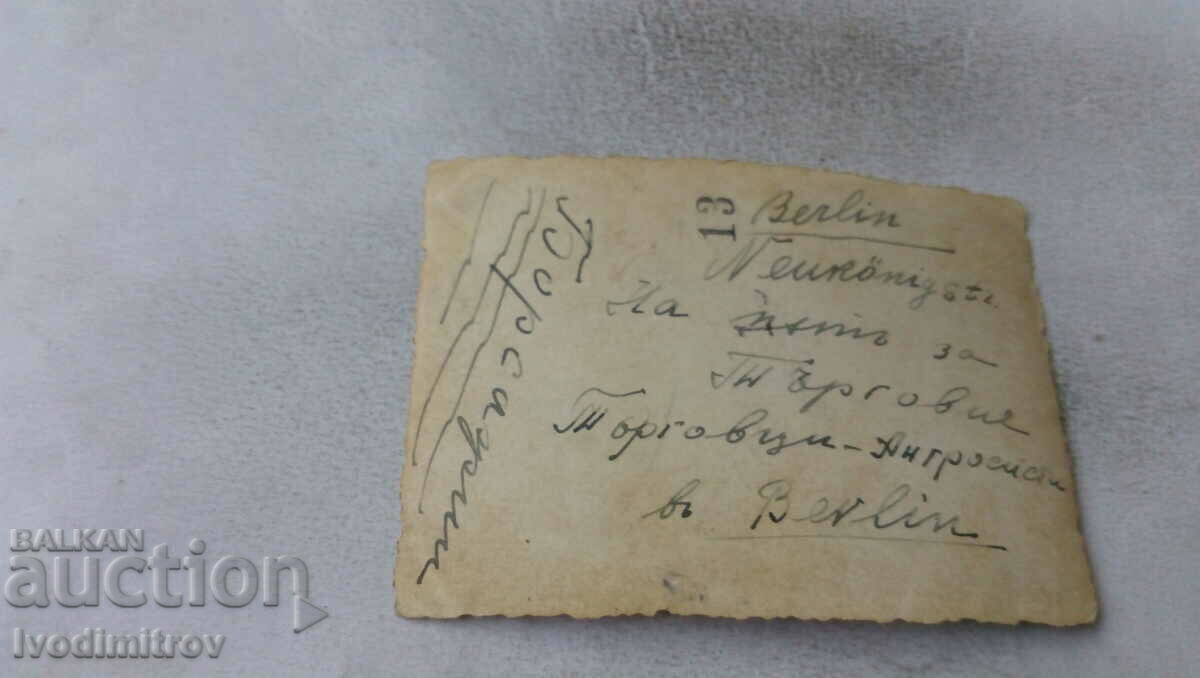 13
Berlin
Neukönigstr.
На пѫтъ за
Търговие
Търговци - Ангросисти
въ Berlin
BALKAN
auction
Ivodimitrov